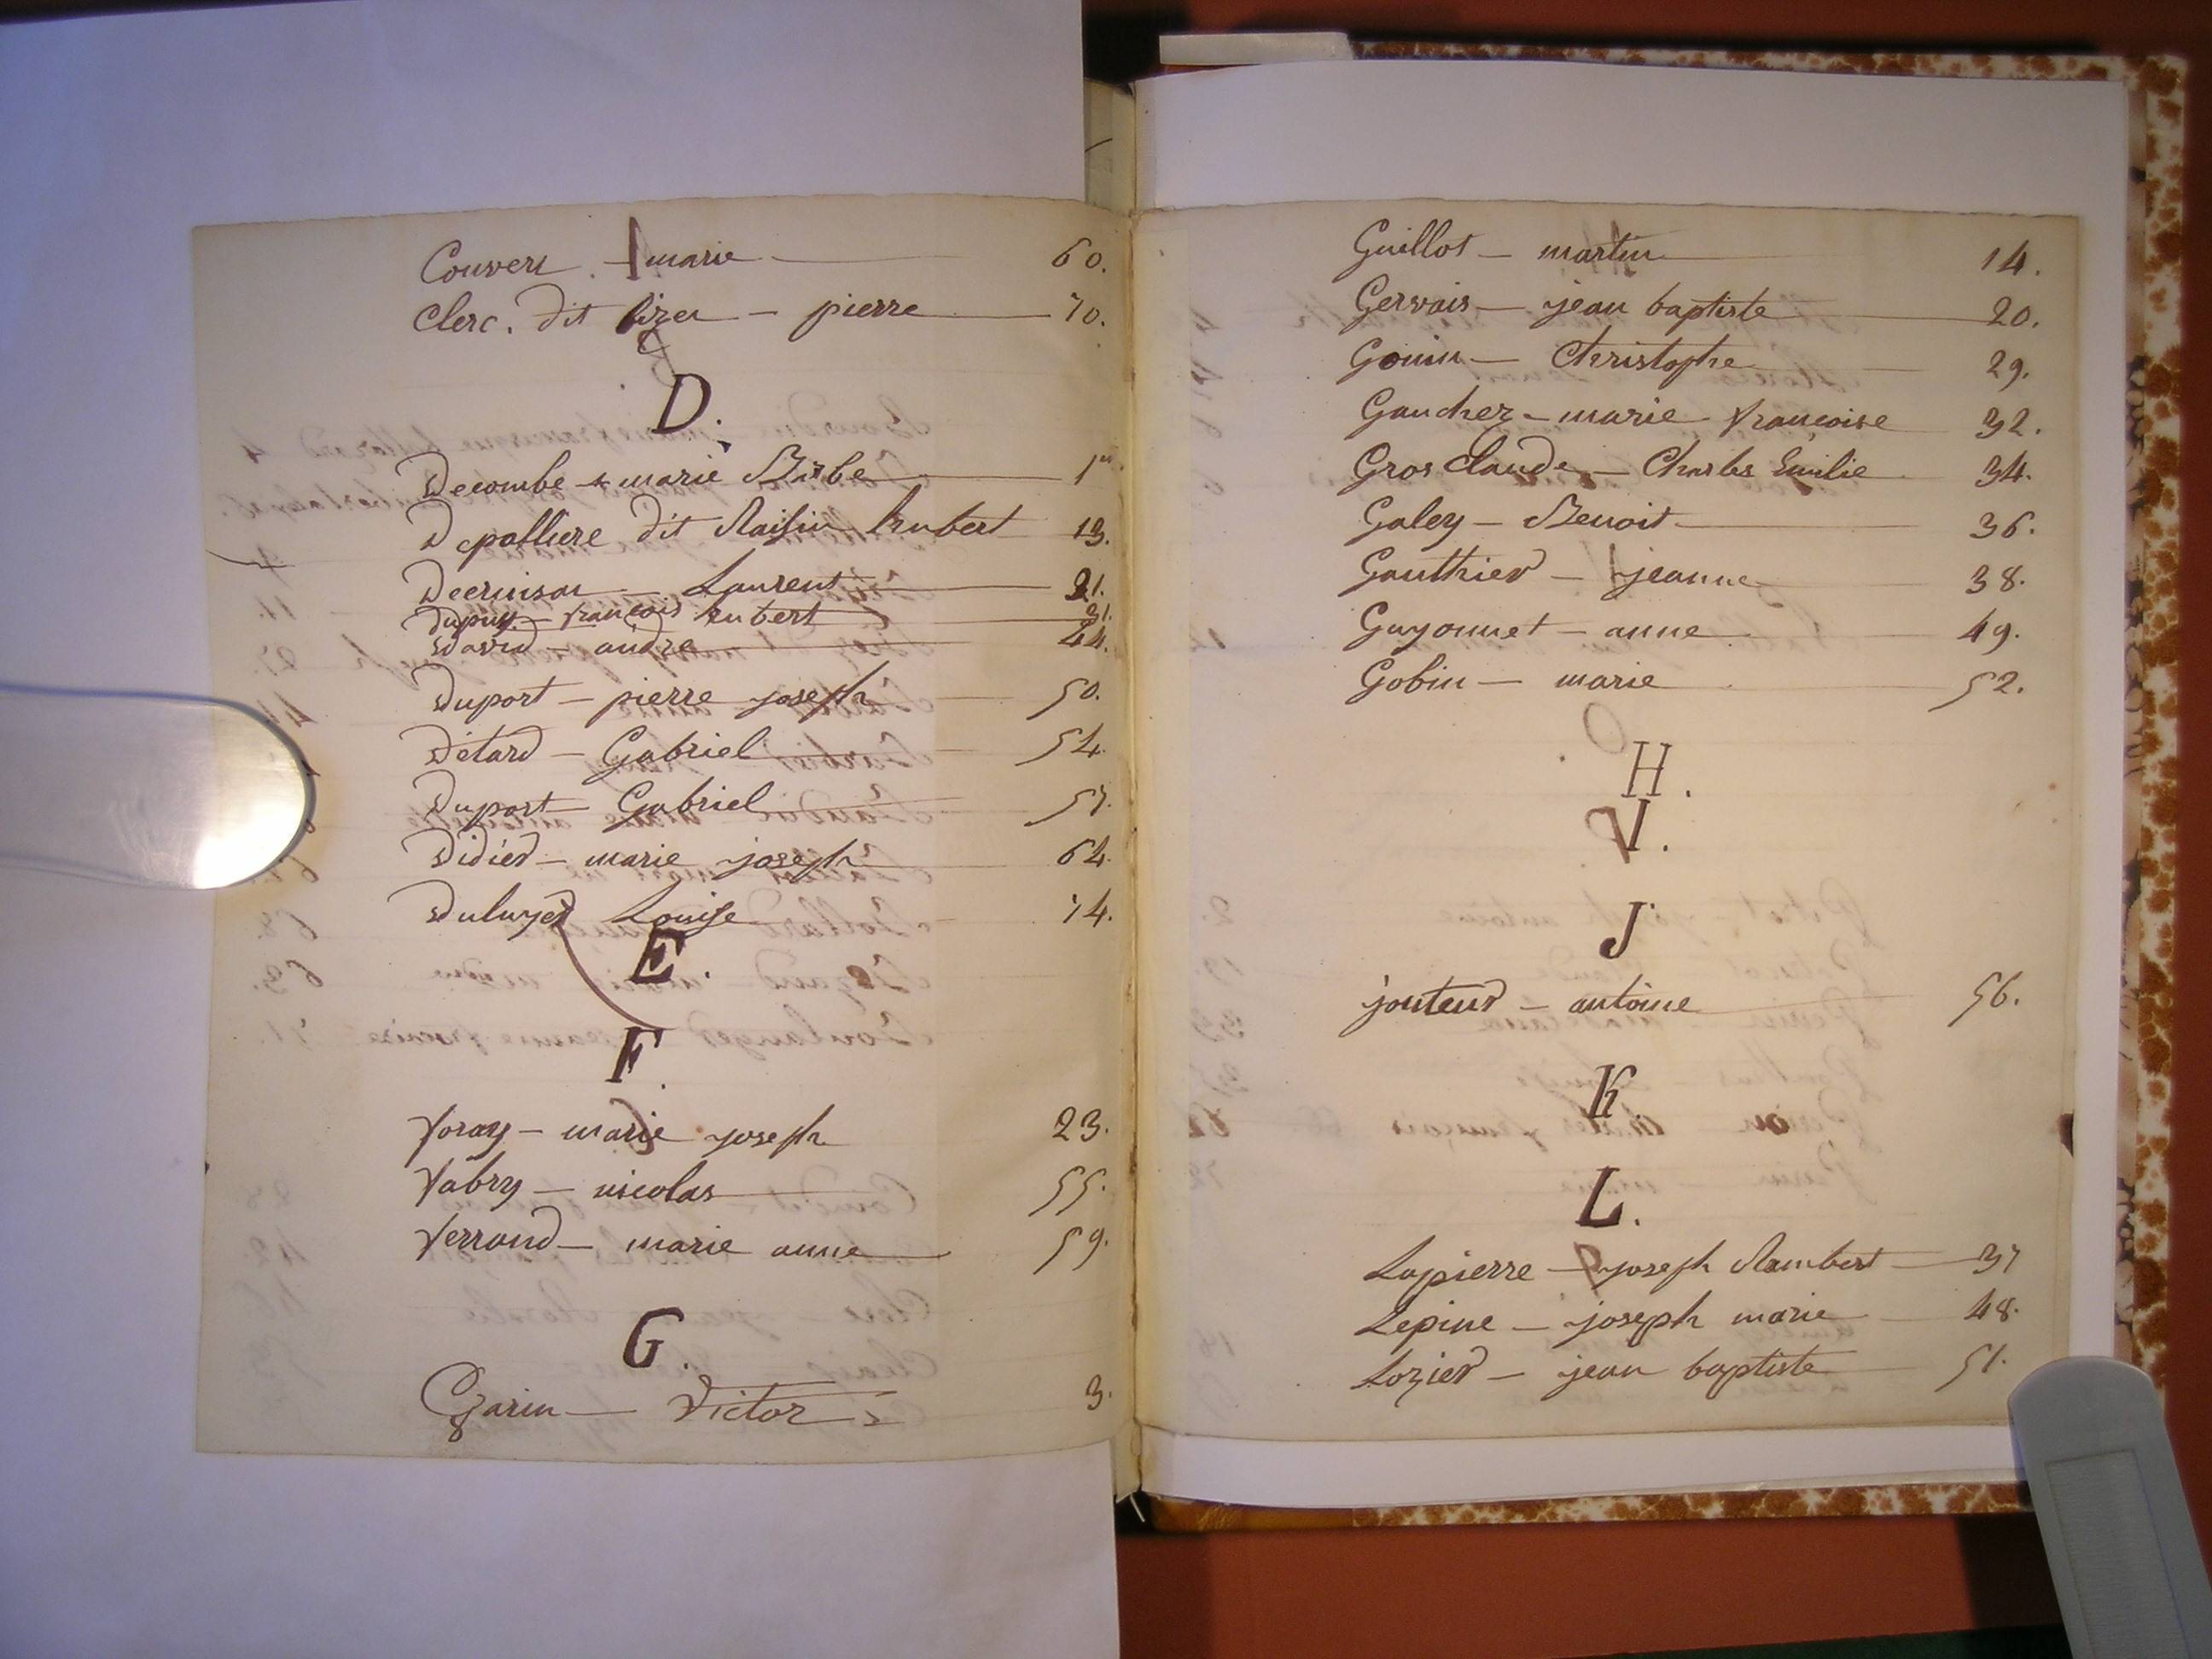 Couvert - marie 60.
Clerc. dit - pierre 70.
D.
Decombe - marie Barbe 1er
Depalliere dit Raisin hubert 13.
Laurent 21.
Dupuy - françois hubert 31.
David - andre 44.
Duport - pierre joseph 50.
Détard - Gabriel 54.
Duport - Gabriel 57.
Didier - marie joseph 64.
Louise 74.
E.
F.
foray - marie joseph 23.
fabry - nicolas 55.
ferrand - marie anne 59.
G.
Garin - Victor 3.
Guillot - martin 14.
Gervais - jean baptiste 20.
Gouin - Christophe 29.
Gaucher - marie françoise 32.
Gros Claude - Charles Emilie 34.
Galey - Benoit 36.
Gauthier - jeanne 38.
Guyonnet - anne 49.
Gobin - marie 52.
H.
I.
J
jouteur - antoine 56.
K.
L.
Lapierre - joseph Rambert 37
Lepine - joseph marie 48.
Lozier - jean baptiste 51.